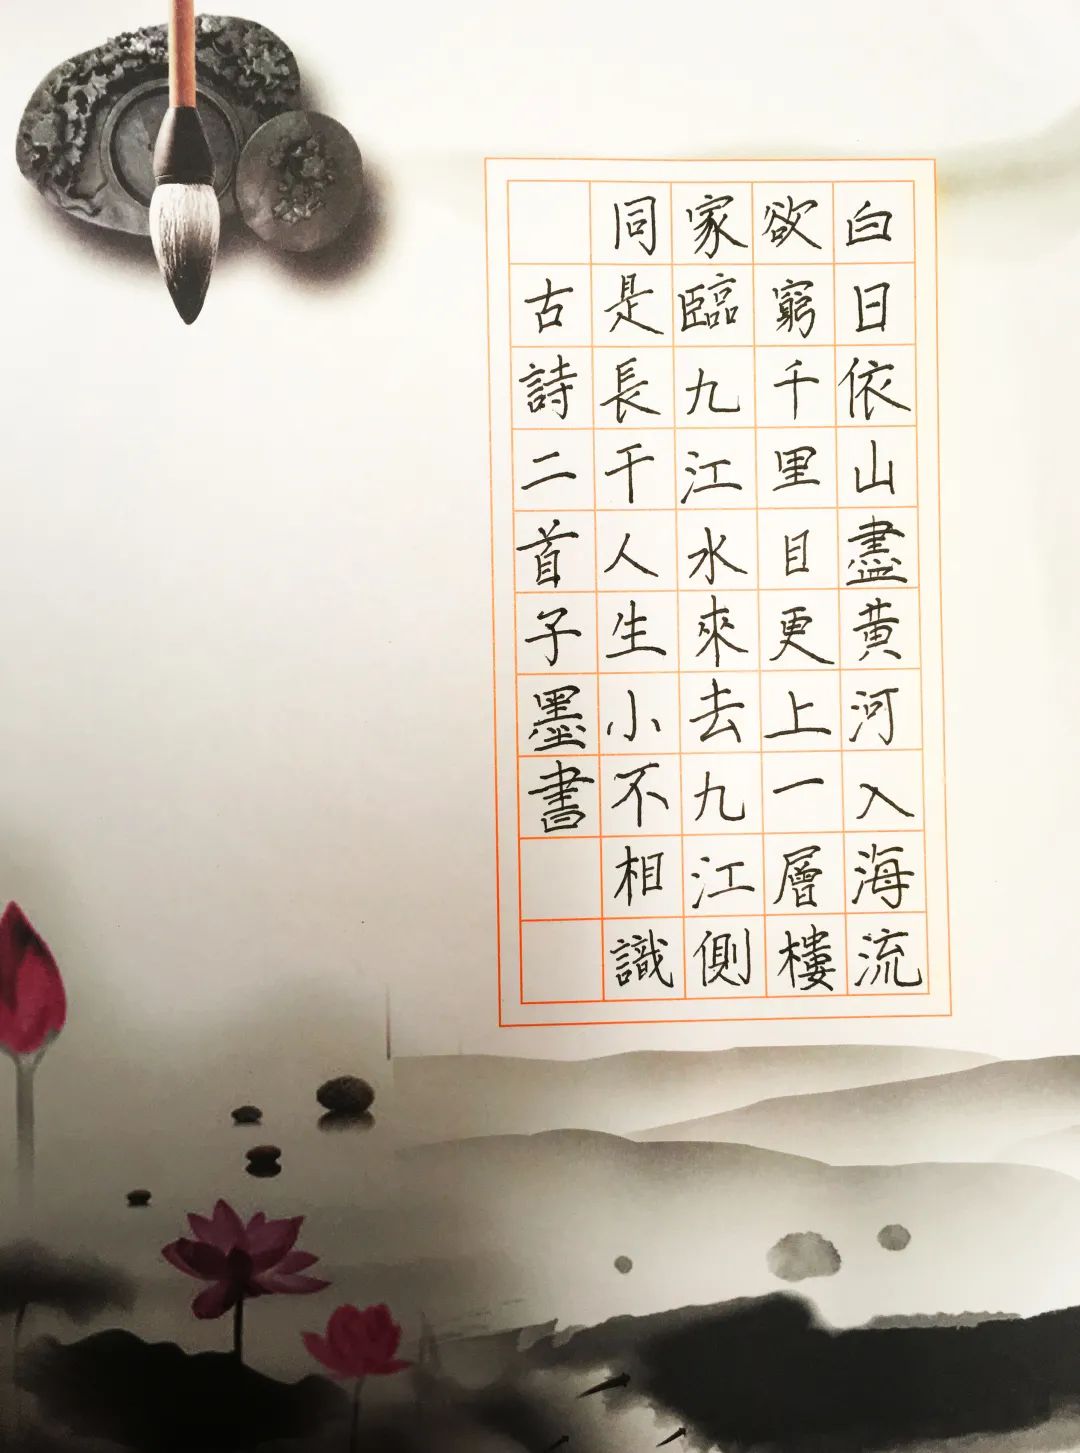 白日依山盡黃河入海流
欲窮千里目更上一層樓
家臨九江水來去九江側
同是長干人生小不相識
古詩二首子墨書